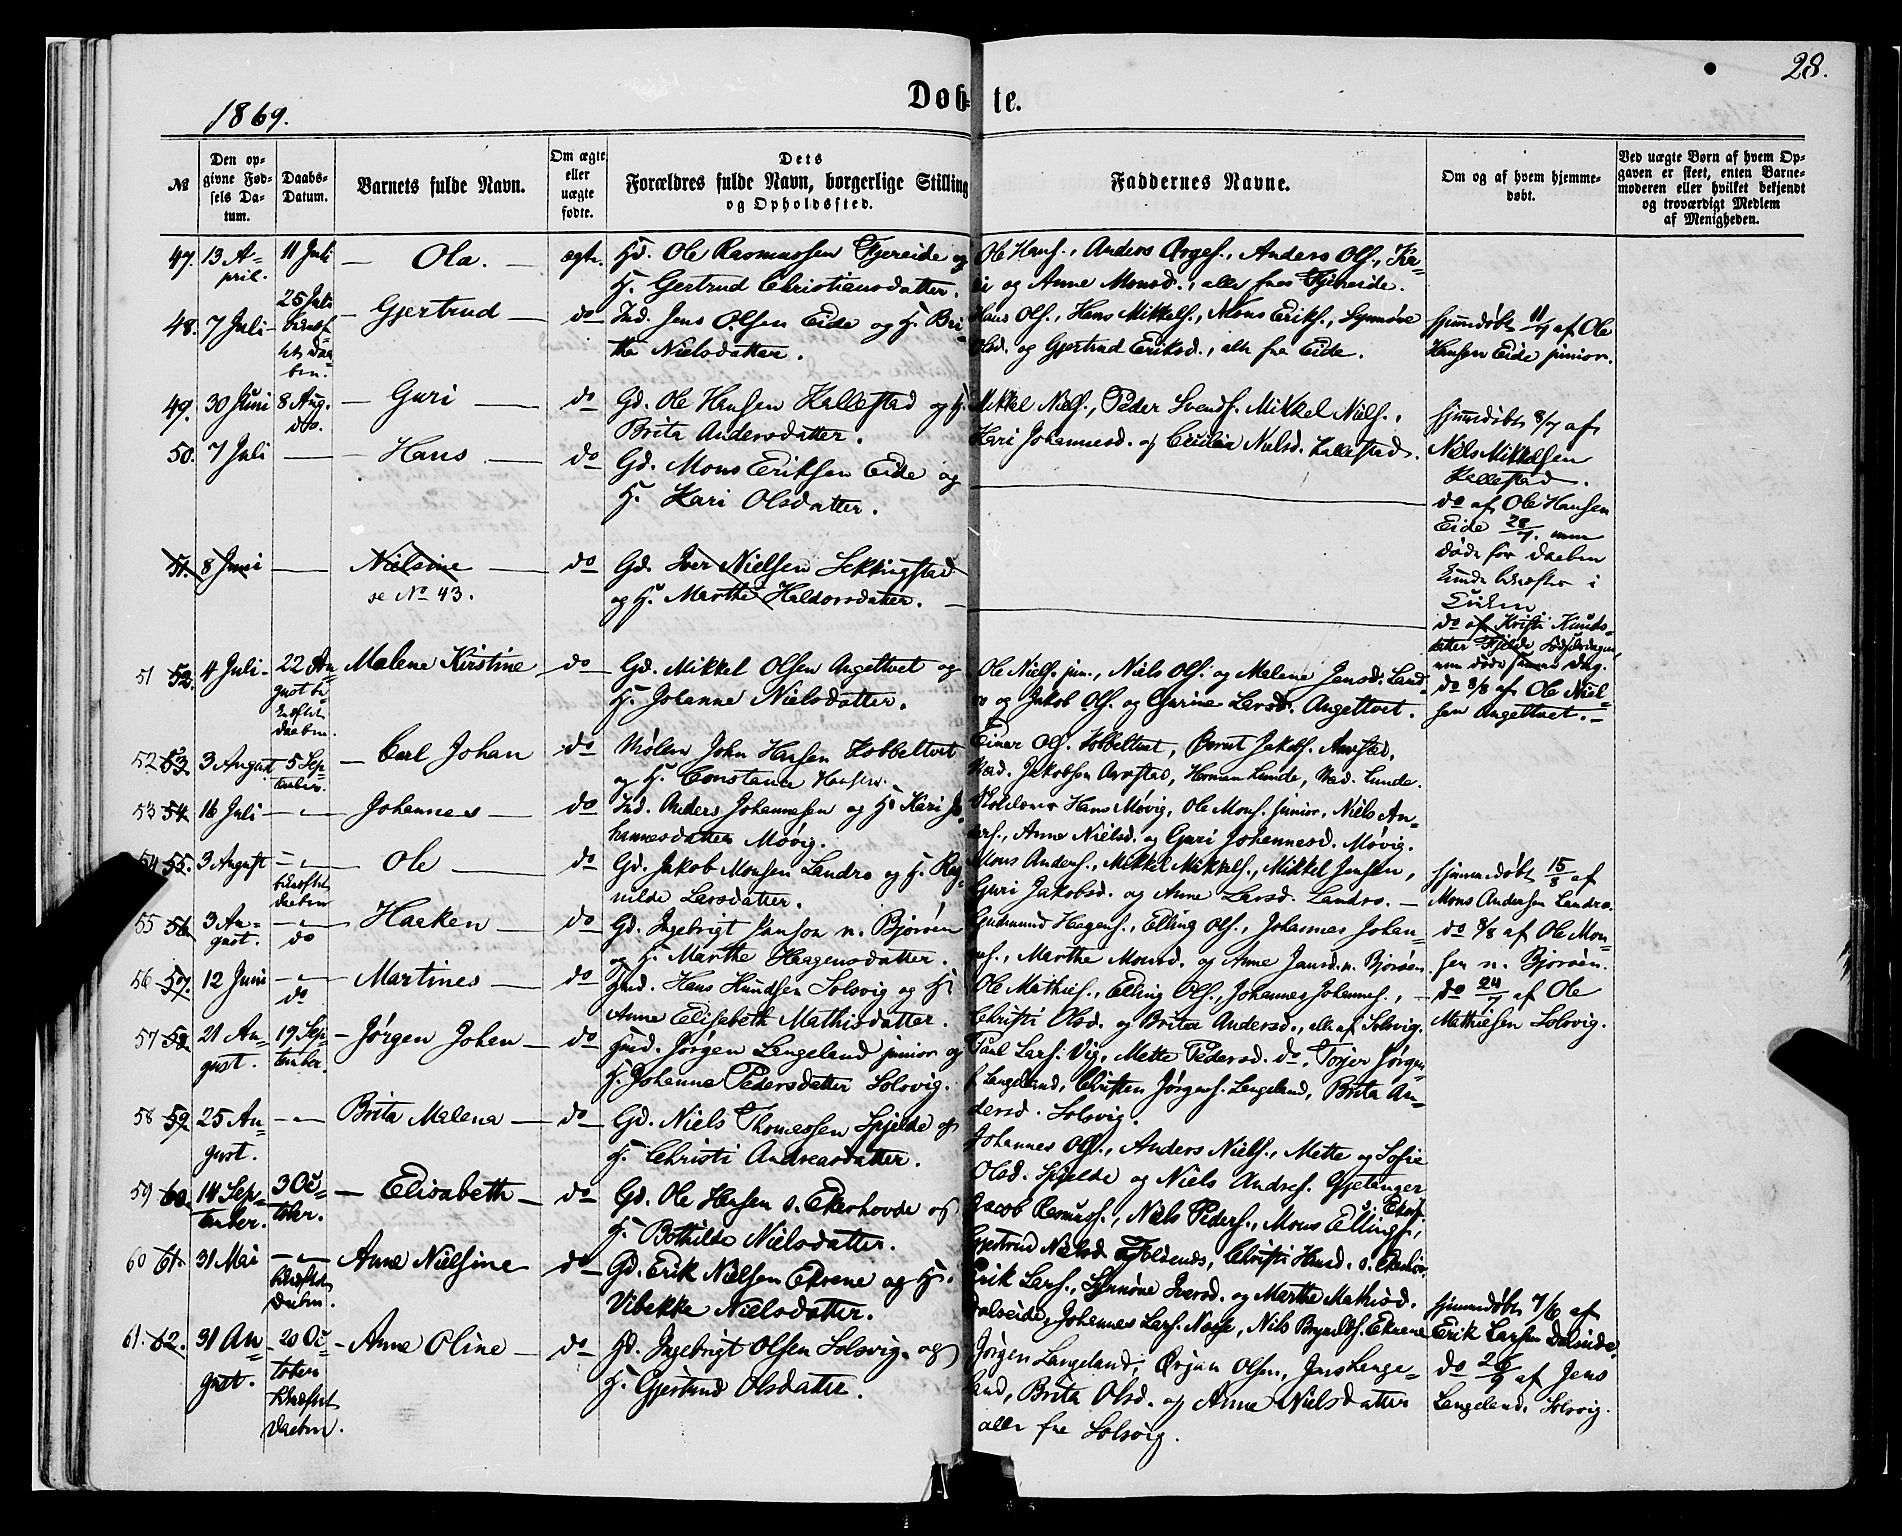 28.
1869.
Døb- te.
№
Den opgivne Fødsels Datum.
Daabs-Datum.
Barnets fulde Navn.
Om ægte eller uægte fødte.
Dets Forældres fulde Navn, borgerlige Stilling og Opholdssted.
Faddernes Navne.
Om og af hvem hjemmedøbt.
Ved uægte Børn af hvem Opgaven er skeet, enten Barnemoderen eller hvilket bekjendt og troværdigt Medlem af Menigheden.
47. 13 April. 11 Juli — Ola. — ægte.
Gd. Ole Rasmussen Fjereide og
H. Gertrud Christiansdatter.
Ole Hans., Anders Aages., Anders Ols., Kari og Anne Monsd., alle fra Fjereide.
48. 7 Juli 25 Juli — Gjertrud — do
Ind. Jens Olsen Eide og H. Britha Nielsdatter.
Hans Ols., Hans Mikkels., Mons Eriks., Synnøve
Olsd. og Gjertrud Eriksd., alle fra Eide.
hjemmedøbt 11/7 af Ole
Hansen Eide junior.
49. 30 Juni 8 Aug. do. — Guri — do
Gd. Ole Hansen Kallestad og H.
Brita Andersdatter.
Mikkel Niels., Peder Svends. Mikkel Niels.,
Kari Johannesd. og Cecilia Nielsd. Kallestad.
hjemmedøbt 8/7 af
Niels Mikkelsen
Kallestad.
50. 7 Juli — Hans — do
Gd. Mons Eriksen Eide og
H. Kari Olsdatter.
do af Ole Hansen
Eide 28/7. men
døde før daaben
kunde bekræftes i
Kirken
51. 8 Juni — Nielsine — do
se No 43.
Gd. Iver Nielsen Sekkingstad
og H. Marthe Haldorsdatter.
do af Kristi Knudsdatter
51 52. 4 Juli 22 August bekræftet daaben. Malene Kirstine do
Gd. Mikkel Olsen Angeltvet og
H. Johanne Nielsdatter.
Ole Niels. jun., Niels Ols. og Malene Jensd. Landro og Jakob Ols. og Gurine Larsd. Angeltvet.
do 8/8 af Ole Nielsen Angeltvet.
52 53. 3 August 5 September. — Carl Johan do
John Hansen Kobbeltvet
og H. Constance Hansen.
Einar Ols. Kobbeltvet, Bernt Jakobs. Aarstad,
Mad. Jakobsen Aarstad, Herman Lunde, Mad. Lunde.
53 54. 16 Juli — Johannes — do
Ind. Anders Johannesen og H. Kari Johannesdatter Møvig.
Hans Møvig, Ole Mons. junior, Niels Anders., Anne Nielsd. og Guri Johannesd. Møvig.
54 55. 3 August bekræftet daaben — Ole — do
Gd. Jakob Monsen Landro og H. Ragnilde Larsdatter.
Mons Anders., Mikkel Mikkels., Mikkel Jensen,
Guri Jakobsd. og Anne Larsd. Landro.
hjemmedøbt 15/8 af
Mons Andersen Landro.
55 56. 3 August. do — Haaken — do
Gd. Ingebrigt Hansen n. Bjorøen
og H. Marthe Haagensdatter.
Gudmund Haagens., Elling Ols., Johannes Johannes., Marthe Monsd. og Anne Jansd. n. Bjorøen.
do 8/8 af Ole Monsen n. Bjorøen.
56 57. 12 Juni do — Martines — do
Hans Knudsen Solsvig og H.
Anne Elisabeth Mathisdatter.
Ole Mathis., Elling Ols., Johannes Johannes.,
Christi Olsd. og Brita Andersd., alle af Solsvig.
do 24/7 af Ole
Mathiesen Solsvig.
57 58. 21 August. 19 September. — Jørgen Johan — do
Jørgen Langeland junior og
H. Johanne Pedersdatter Solsvig.
Paul Lars. Vig, Mette Pedersd. do, Torjer Jørgens. Langeland, Christen Jørgens. Langeland, Brita Andersd. Solsvig.
58 59. 25 August. Brita Malena — do
Gd. Niels Thomassen Spjelde og
H. Christi Andreasdatter.
Johannes Ols., Anders Niels., Mette og Sofie
Olsd. Spjelde og Niels Andres. Gjetanger
59 60. 14 September. 3 October. — Elisabeth — do
Gd. Ole Hansen s. Ekerhovde og
H. Bothilde Nielsdatter.
Jacob Rasmuss., Niels Peders., Mons Ellings.,
60 61. 31 Mai bekræftet daaben. Anne Nielsine do
Gd. Erik Nielsen Ekrene og H.
Vibekke Nielsdatter.
Erik Lars., Synnøve Iversd. og Marthe Mathisd.
Dalseide, Johannes Lars. Nese, Nils Ekrene
hjemmedøbt 7/6 af
Erik Larsen Dalseide.
61. 62. 31 August. 20 October bekræftet daaben. — Anne Oline — do
Gd. Ingebrigt Olsen Solsvig og
H. Gjertrud Olsdatter.
Jørgen Langeland, Ørjan Olsen, Jens Langeland, Brita Olsd. og Anne Nielsdatter
alle fra Solsvig.
do 26/9 af Jens
Langeland, Solsvig.